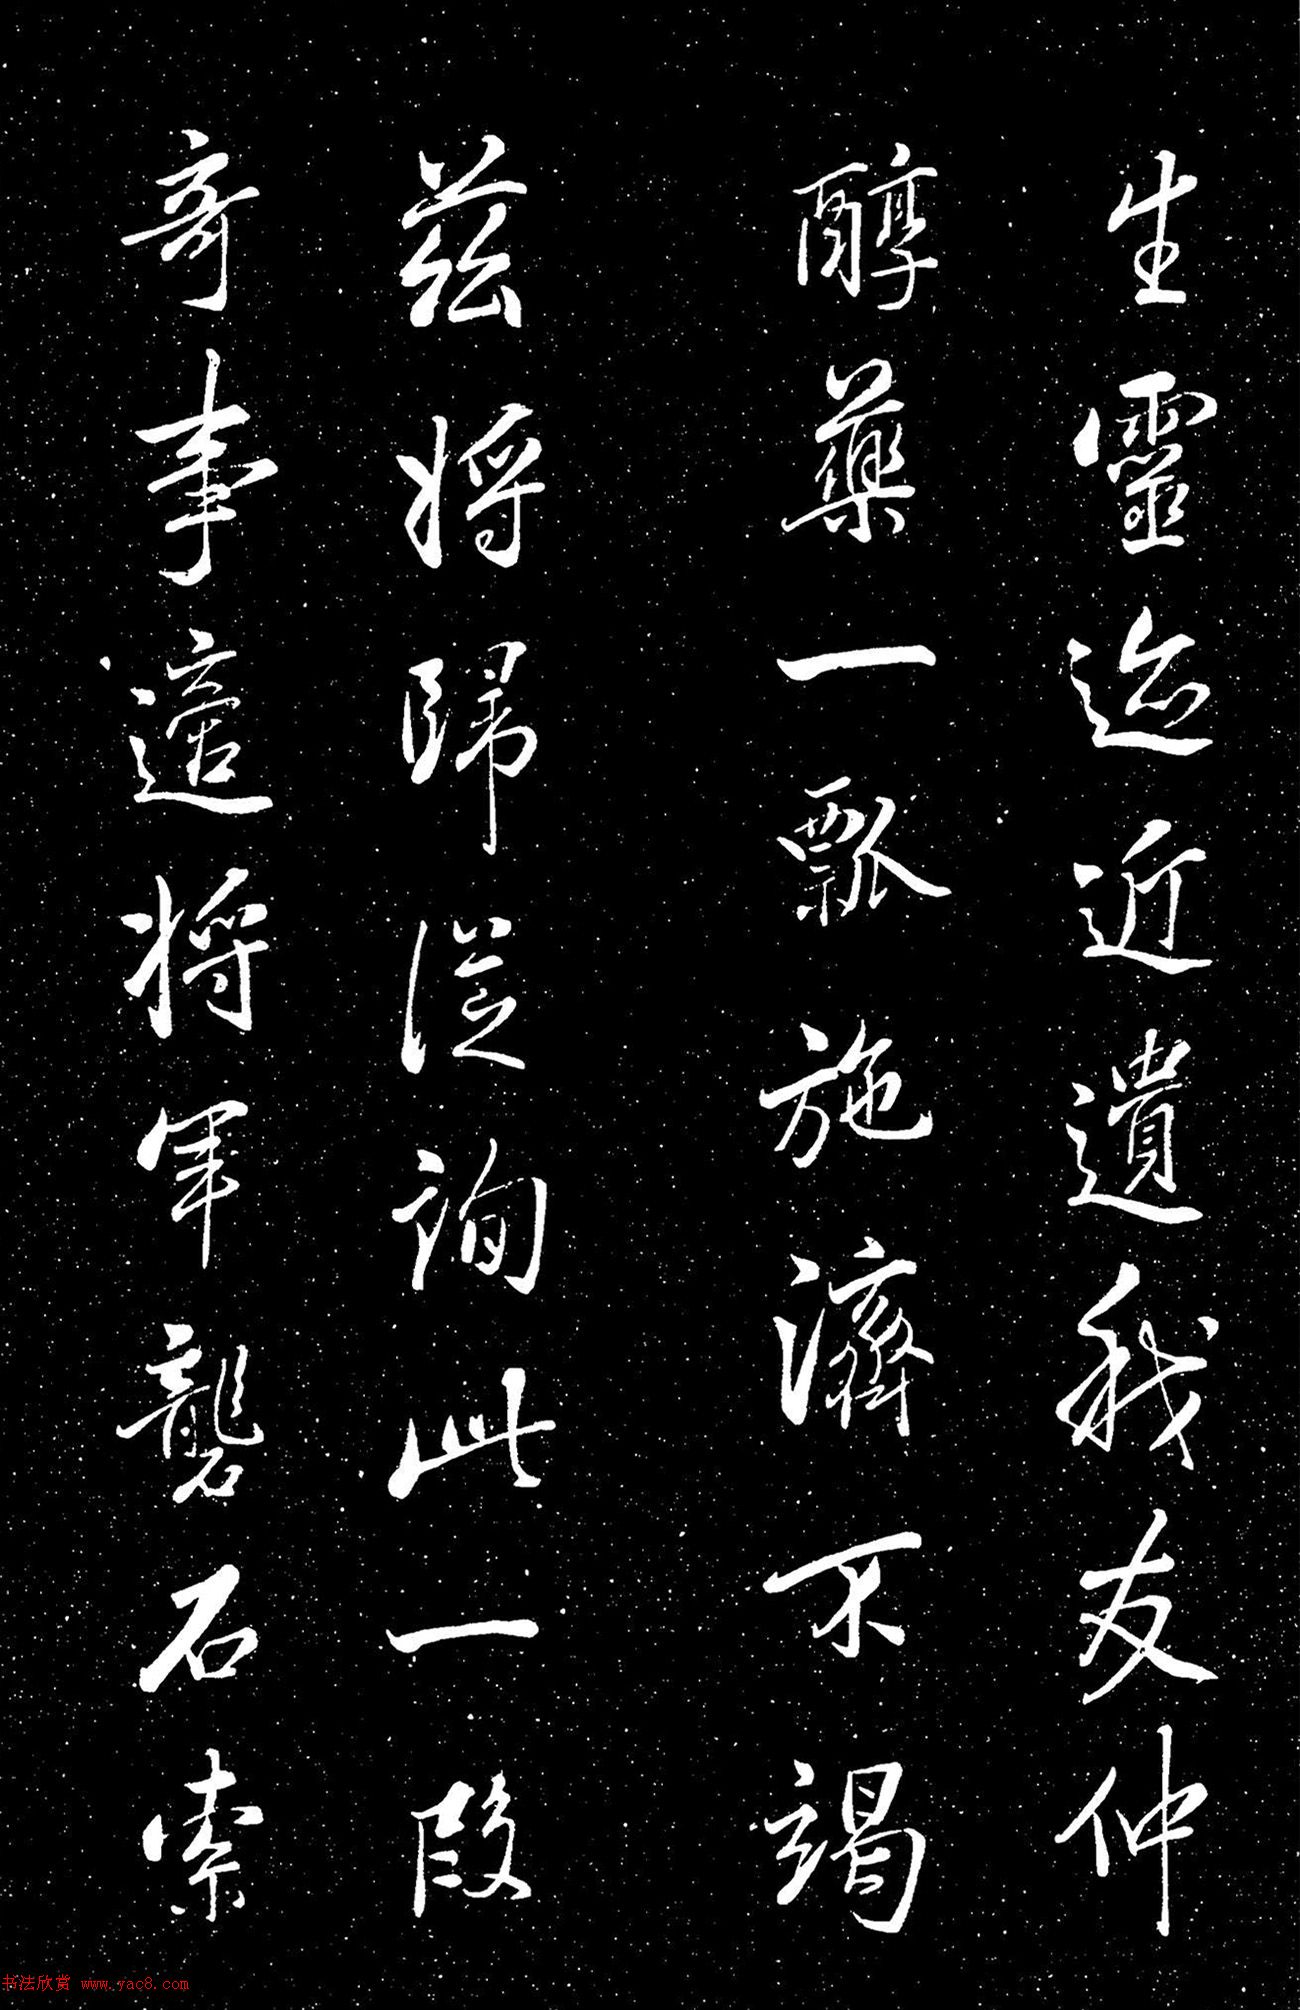 生靈迩近遺我友仲
醇藥一瓢施濟不竭
茲將歸從詢此一段
奇事適將軍礱石索
书法欣赏 www.yac8.com